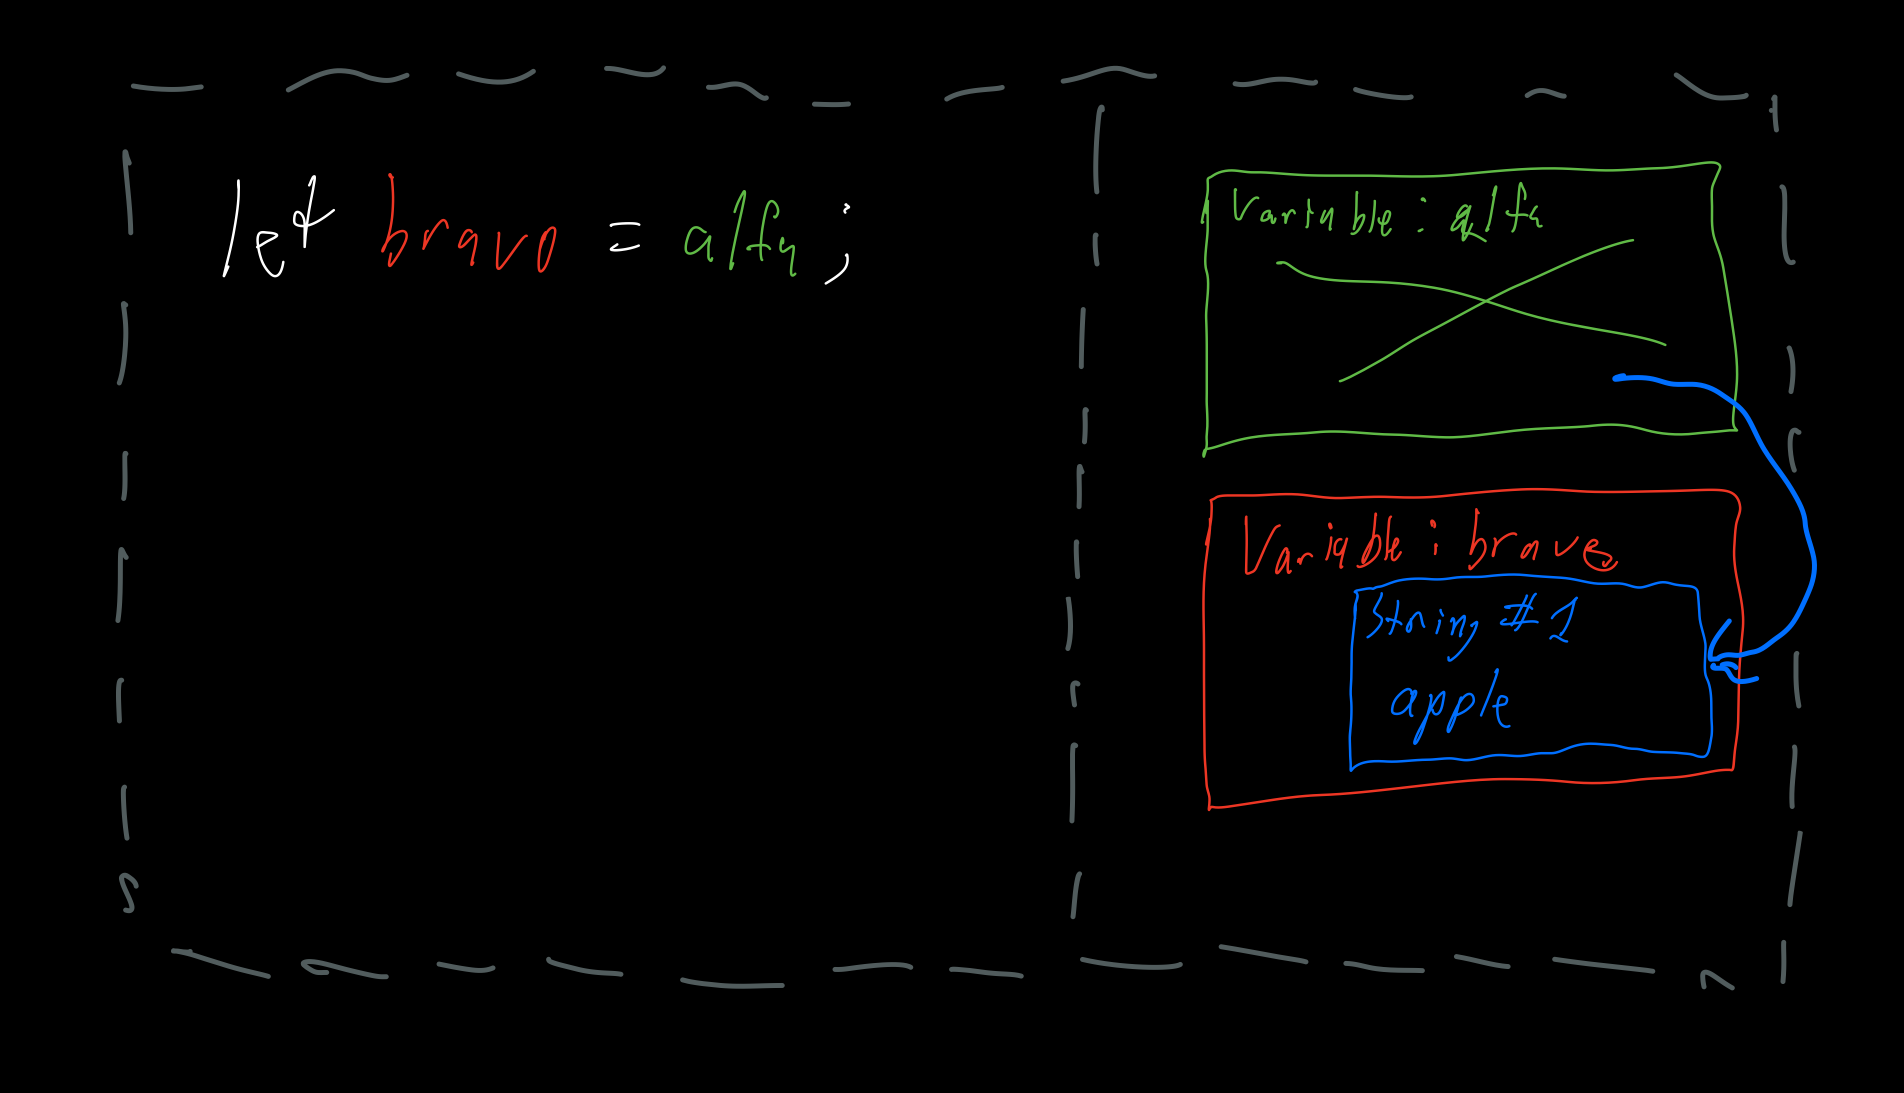 let bravo = alfa;
Variable: alfa
Variable: bravo
String #1
apple